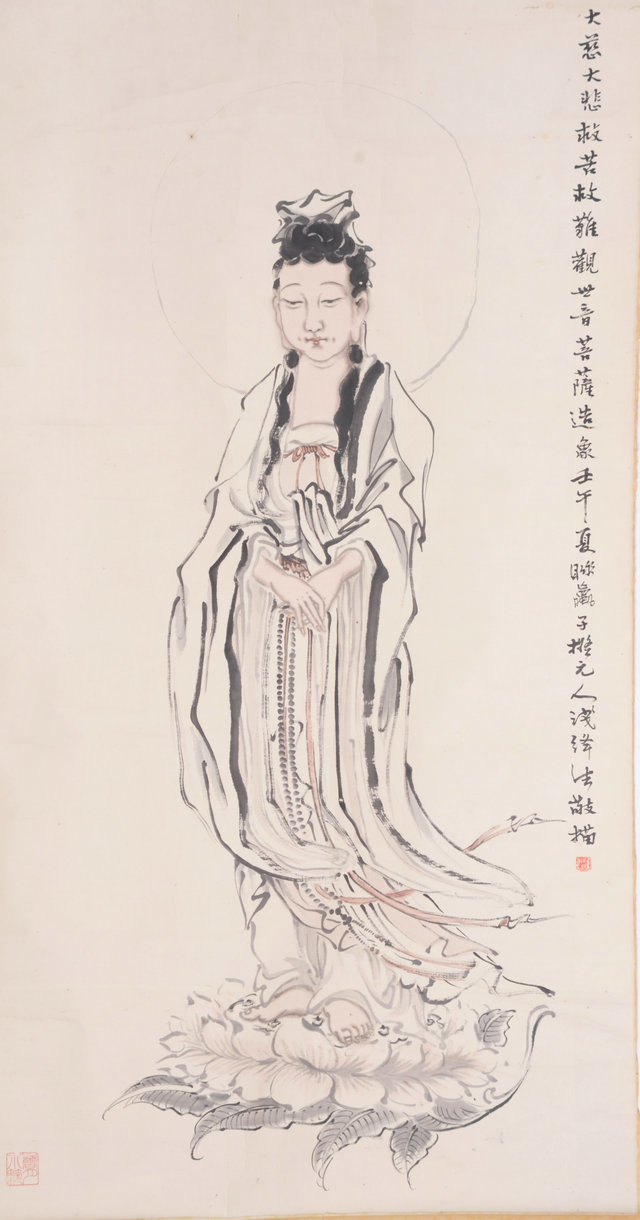 大慈大悲救苦救難觀世音菩薩造象壬午夏 子擬元人淺絳法敬描